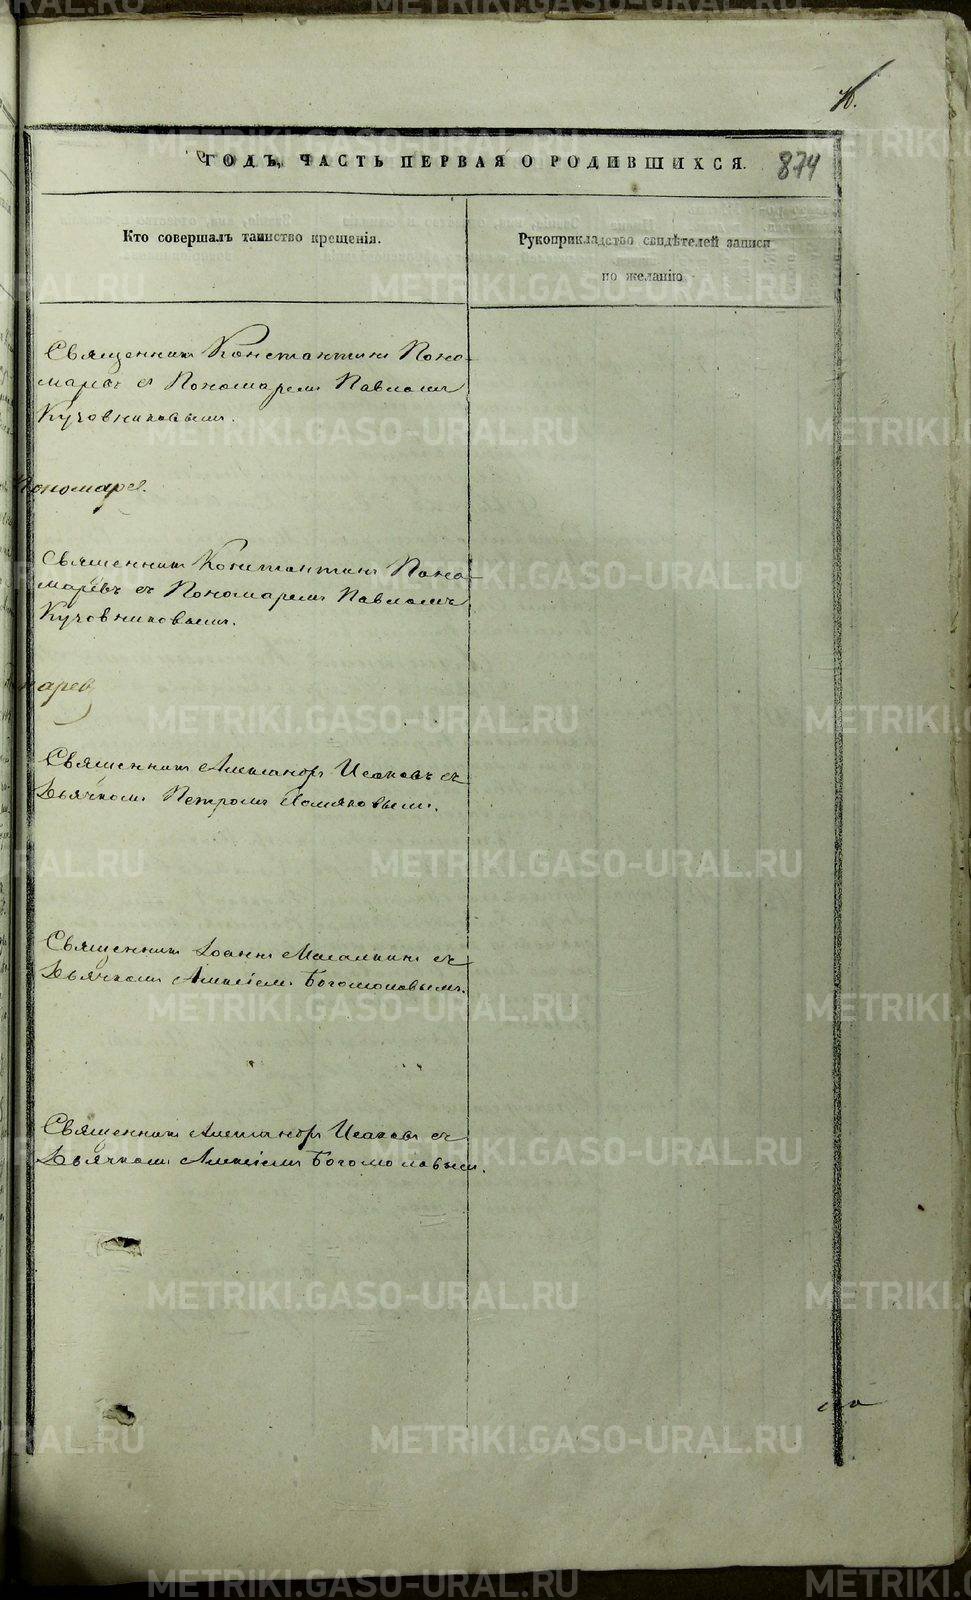 METRIKI.GASO-URAL.RU
ГОДЪ, ЧАСТЬ ПЕРВАЯ О РОДИВШИХСЯ. 874
Кто совершалъ таинство крещенія.
Рукоприкладство свидѣтелей записи
по желанію
Священникъ Константинъ Поно-
маревъ съ Пономаремъ Павломъ
Кузовниковымъ.
Пономаре
Священникъ Константинъ Поно-
маревъ съ Пономаремъ Павломъ
Кузовниковымъ.
марев
Священникъ Александръ Исаковъ съ
Дьячкомъ Петромъ Хомяковымъ.
Священникъ Іоаннъ съ
Дьячкомъ Алексіемъ Богомоловымъ.
Священникъ Александръ Исаковъ съ
Дьячкомъ Алексіемъ Богомоловымъ.